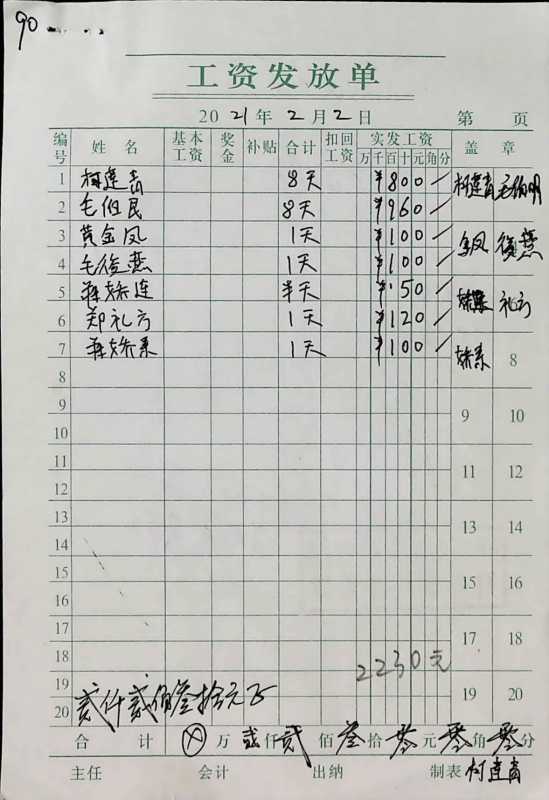 90
工资发放单
2021年2月2日 第 页
编号 姓名 基本工资 奖金 补贴 合计 扣回工资 实发工资 万千百十元角分 盖章
1 柯莲青 8天 ¥800 柯莲青 毛伯明
2 毛伯民 8天 ¥960
3 黄金凤 1天 ¥100 金凤 俊燕
4 毛俊燕 1天 ¥100
5 蒋娇连 半天 ¥50 礼方
6 郑礼方 1天 ¥120
7 蒋娇系 1天 ¥100 娇系 8
8
9 9 10
10
11 11 12
12
13 13 14
14
15 15 16
16
17 17 18
18 2230元
19 贰仟贰佰叁拾元正 19 20
20
合计 ⊗万贰仟贰佰叁拾零元零角零分
主任 会计 出纳 制表 柯莲青